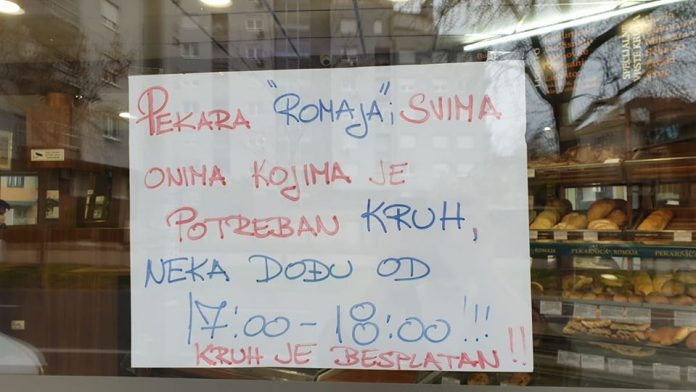 PEKARA "ROMAJA" i SVIMA
ONIMA KOJIMA JE
POTREBAN KRUH,
NEKA DOĐU OD
17:00 - 18:00!!!
KRUH JE BESPLATAN!!
ROMAJA
PEKARNICA
ROMAJA
PEKARNICA